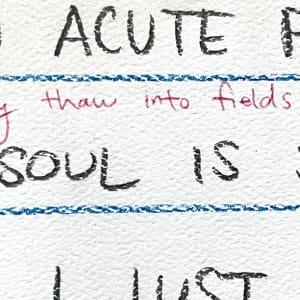 ACUTE
thaw into fields
SOUL IS
I JUST